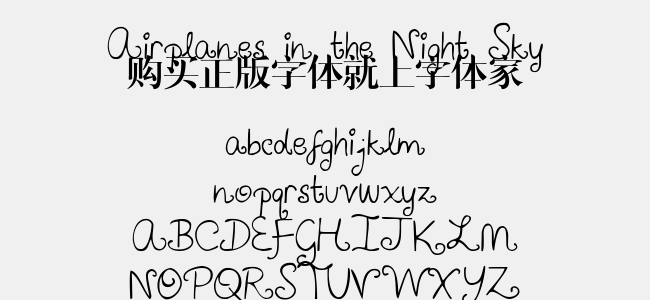 Airplanes in the Night Sky
购买正版字体就上字体家
abcdefghijklm
nopqrstuvwxyz
ABCDEFGHIJKLM
NOPQRSTUVWXYZ